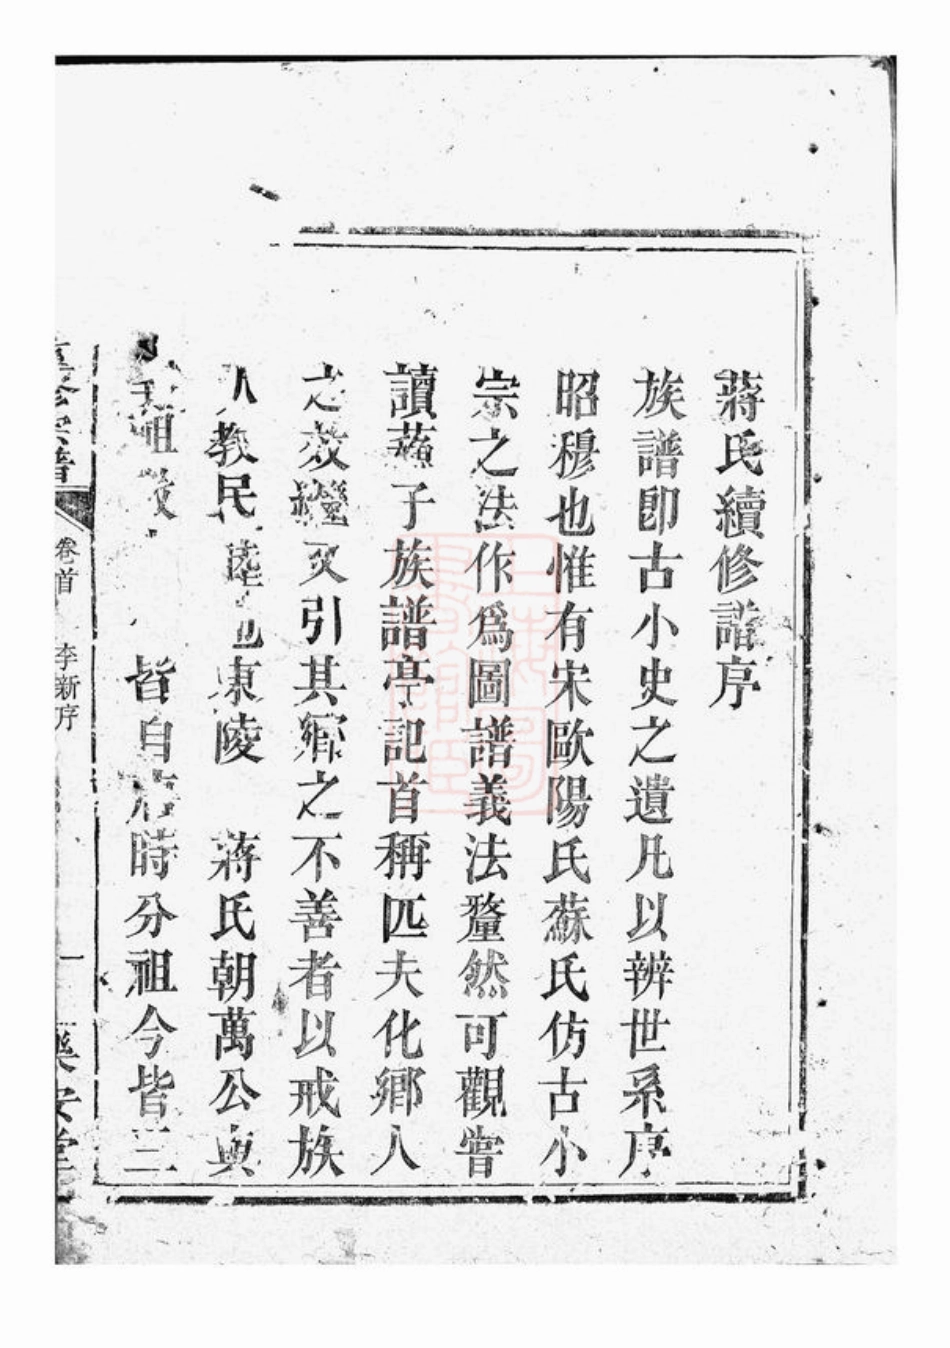 蔣氏續修譜序
族譜卽古小史之遺凡以辨世系序
昭穆也惟有宋歐陽氏蘇氏仿古小
宗之法作爲圖譜義法釐然可觀嘗
讀蘇子族譜亭記首稱匹夫化鄉人
之效繼又引其鄉之不善者以戒族
人教民睦也東陵 蔣氏朝萬公與
祖 皆自唐時分祖今皆三
卷首 李新序 一 樂安堂